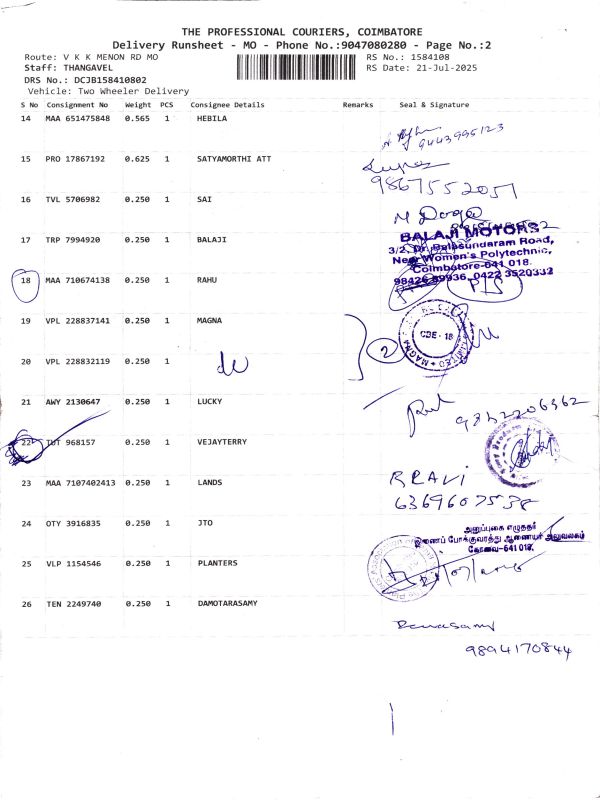 THE PROFESSIONAL COURIERS, COIMBATORE
Delivery Runsheet - MO - Phone No.:9047080280 - Page No.:2
Route: V K K MENON RD MO
RS No.: 1584108
Staff: THANGAVEL
RS Date: 21-Jul-2025
DRS No.: DCJB158410802
Vehicle: Two Wheeler Delivery
S No Consignment No Weight PCS Consignee Details Remarks Seal & Signature
14 MAA 651475848 0.565 1 HEBILA
9443995123
15 PRO 17867192 0.625 1 SATYAMORTHI ATT
9867552051
16 TVL 5706982 0.250 1 SAI
M Durga
17 TRP 7994920 0.250 1 BALAJI
BALAJI MOTORS
3/2, Dr. Balasundaram Road,
Near Women's Polytechnic,
Coimbatore-641 018.
0422 3520332
18 MAA 710674138 0.250 1 RAHU
19 VPL 228837141 0.250 1 MAGNA
2
CBE - 18
20 VPL 228832119 0.250 1
21 AWY 2130647 0.250 1 LUCKY
9352206362
22 TUT 968157 0.250 1 VEJAYTERRY
23 MAA 7107402413 0.250 1 LANDS
R RAVI
6369607538
24 OTY 3916835 0.250 1 JTO
அனுப்புகை எழுத்தர்
இணைப் போக்குவரத்து ஆணையர் அலுவலகம்
கோவை-641 018.
25 VLP 1154546 0.250 1 PLANTERS
26 TEN 2249740 0.250 1 DAMOTARASAMY
Ramasamy
9894170844